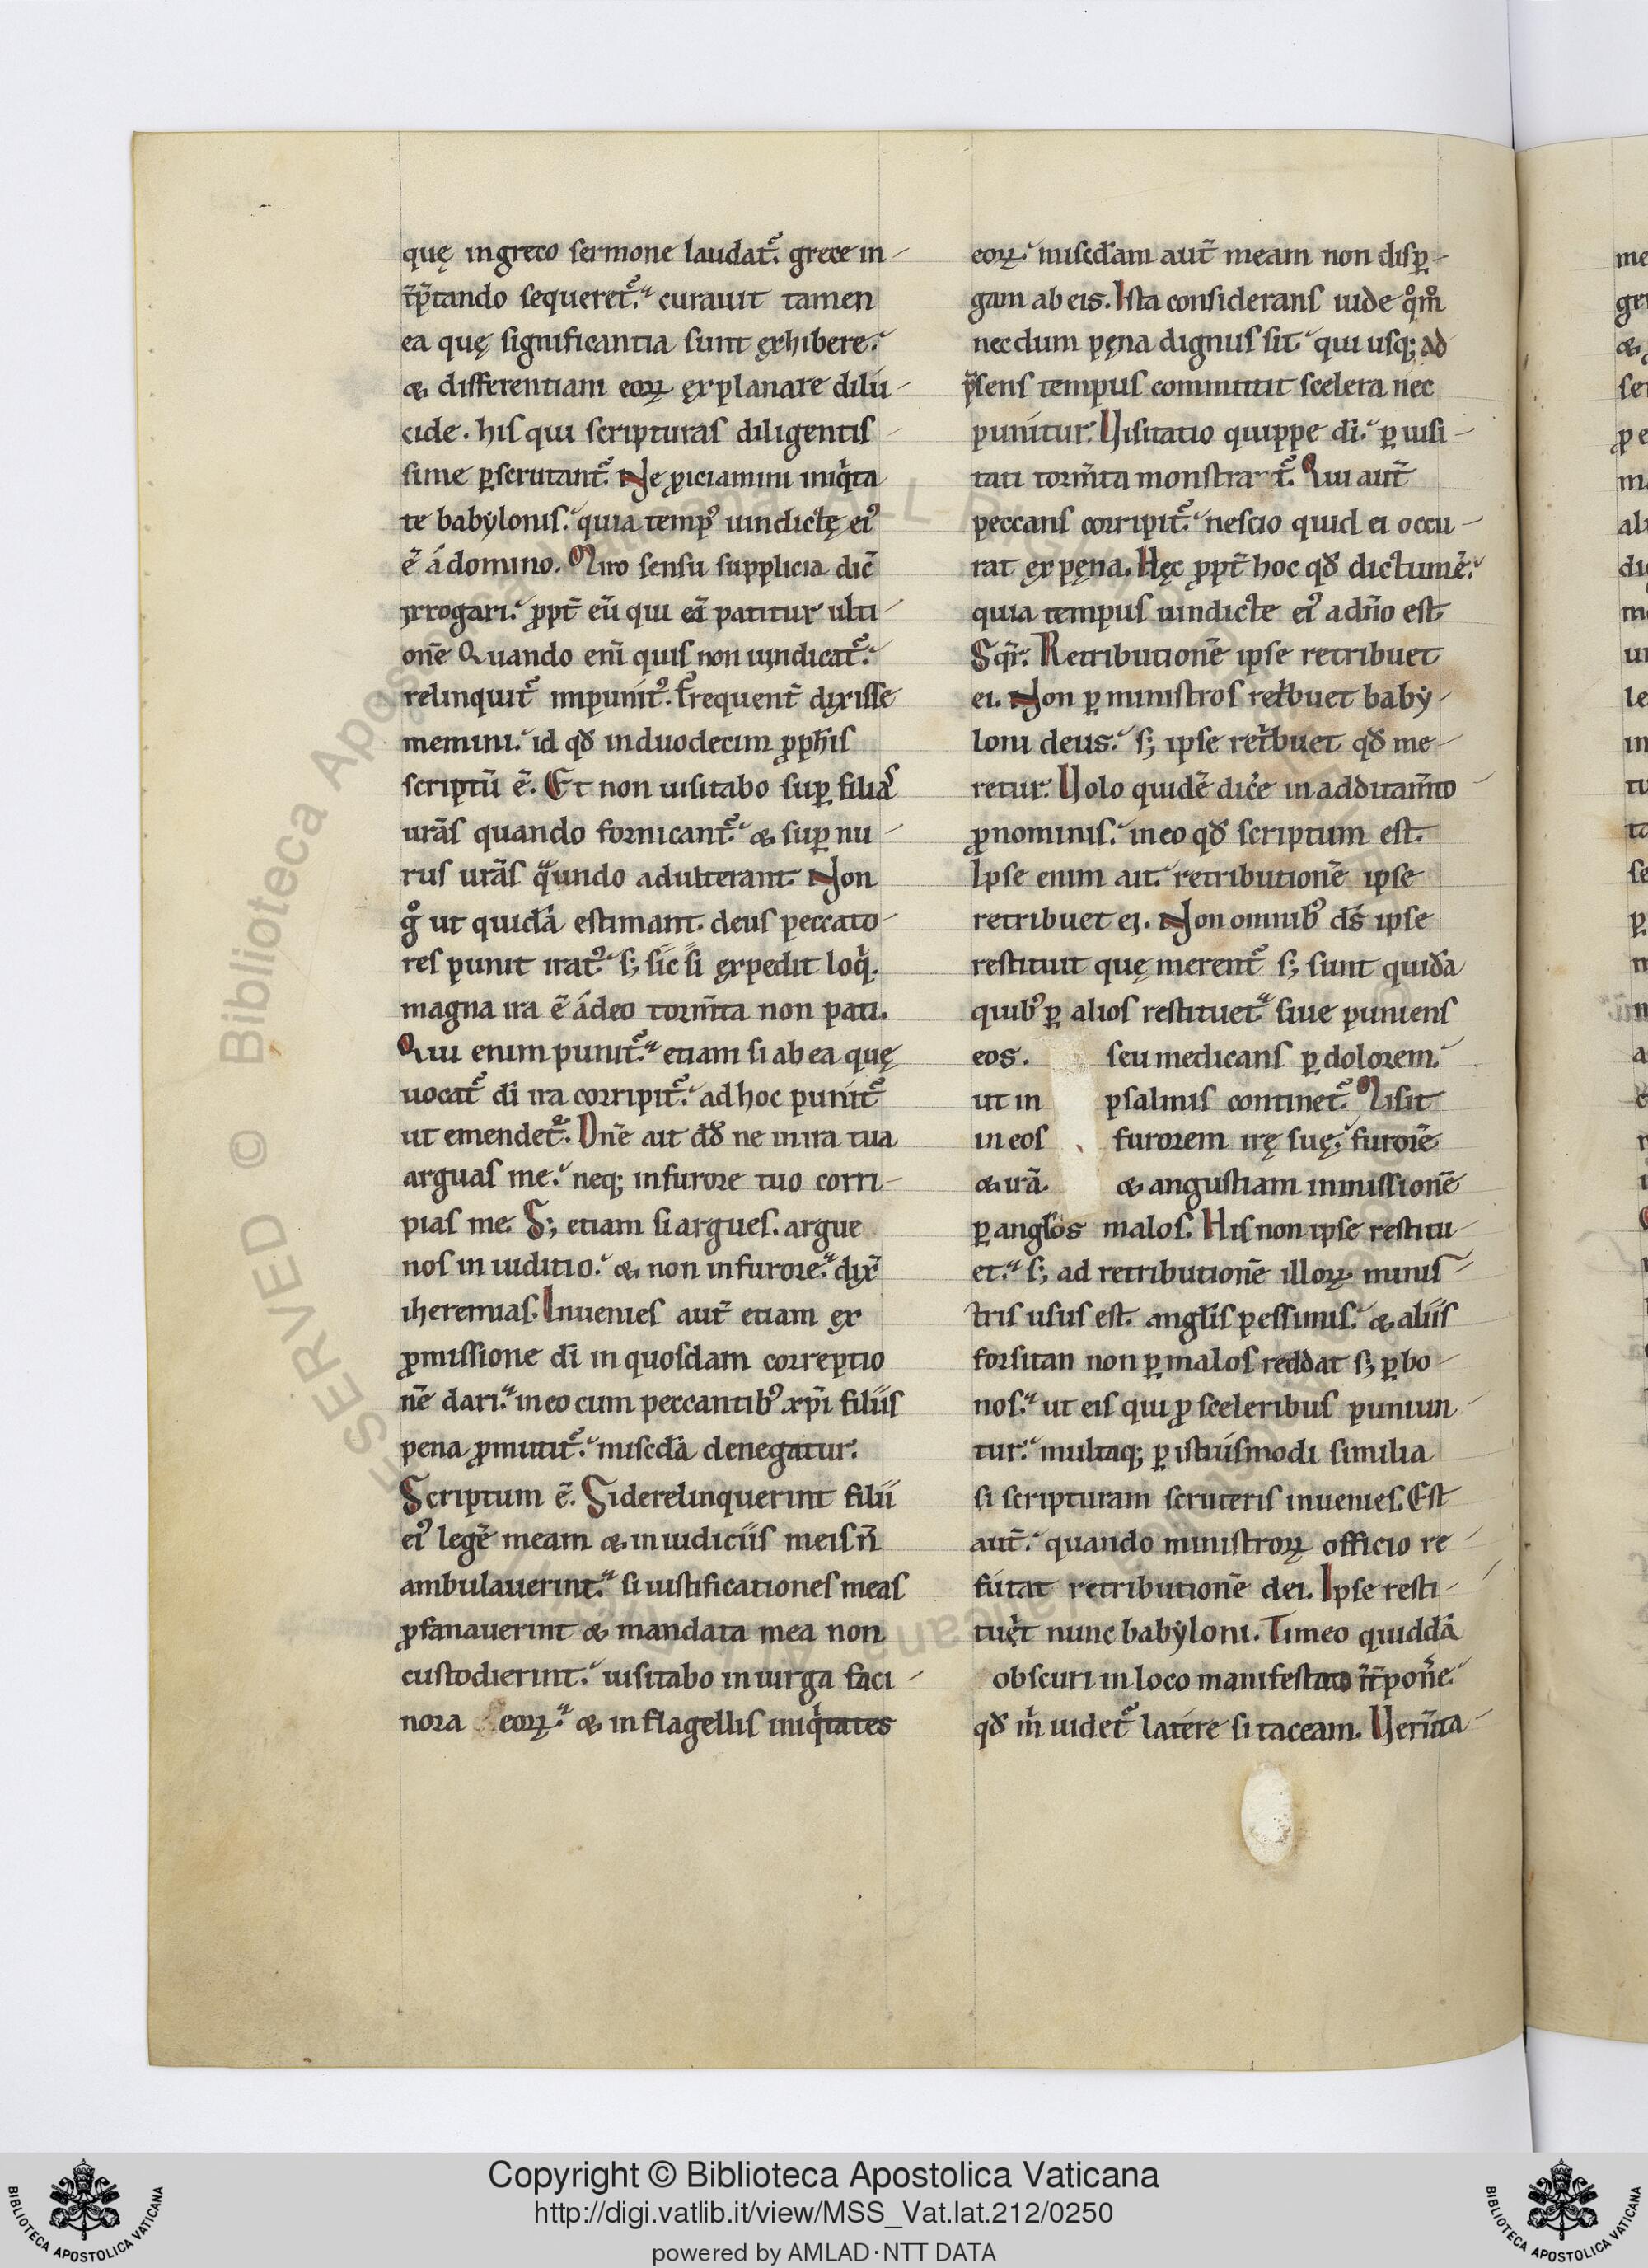 quę in greco sermone laudat᷑. grece in-
t̄p̄tando sequeret᷑. curauit tamen
ea quę significantia sunt exhibere.
& differentiam eoꝝ explanare dilu-
cide. his qui scripturas diligentis-
sime ꝑscrutant᷑. Ne ꝓiciamini iniqͥta
te babylonis. quia tempꝰ uindictę eiꝰ
ē a domino. Miro sensu supplicia dic̄
irrogari. ꝓpt̄ eū qui eā patitur ulti-
onē Quando eni̅ quis non uindicat᷑.
relinquit᷑ impunitꝰ. Frequent̄ dixisse
memini. id qđ in duodecim ꝓph̄is
scriptū ē. Et non uisitabo suꝑ filias
ur̄as quando fornicant᷑. & suꝑ nu-
rus ur̄as qͣndo adulterant. Non
gͦ ut quidā estimant. deus peccato-
res punit iratꝰ. s; sic si expedit loqͥ.
magna ira ē a deo torm̄ta non pati.
Qui enim punit᷑. etiam si ab ea quę
uocat᷑ dī ira corripit᷑. ad hoc punit᷑
ut emendet᷑. Dn̄e ait dđ ne in ira tua
arguas me. neq; in furore tuo corri-
pias me. S; etiam si argues. argue
nos in iuditio. & non in furore. dix̄
iheremias. Inuenies aut̄ etiam ex
ꝓmissione dī in quosdam correptio
nē dari. in eo cum peccantibꝰ xp̄i filiis
pena ꝓmittit᷑. misc̄dā denegatur.
Scriptum ē. Si derelinquerint filii
eiꝰ legē meam & in iudiciis meis n̄
ambulauerint. si iustificationes meas
ꝓfanauerint & mandata mea non
custodierint. uisitabo in uirga faci-
nora eoꝝ. & in flagellis iniqͥtates
eoꝝ. misc̄dam aut̄ meam non disꝑ-
gam ab eis. Ista considerans uide qͦm̊
necdum pęna dignus sit qui usq; ad
p̄sens tempus committit scelera nec
punitur. Uisitatio quippe dī. ꝑ uisi-
tati torm̄ta monstrat᷑. Qui aut̄
peccans corripit᷑. nescio quid ei occu-
rat ex pęna. Hęc ꝓpt̄ hoc qđ dictum ē.
quia tempus uindicte eiꝰ a dn̄o est
Sqr̄. Retributionē ipse retribuet
ei. Non ꝑ ministros ret̍buet baby-
loni deus. s; ipse ret̍buet qđ me-
retur. Uolo quidē dic̍e in additam̄to
ꝓnominis. in eo qđ scriptum est.
Ipse enim ait. retributionē ipse
retribuet ei. Non omnibꝰ ds̄ ipse
restituit quę merent᷑ s; sunt quidā
quibꝰ ꝑ alios restituet siue puniens
eos. seu medicans ꝑ dolorem.
ut in psalmis continet᷑. Misit
in eos furorem irę suę. furorē
& irā. & angustiam inmissionē
ꝑ angl̄os malos. His non ipse restitu-
et. s; ad retributionē illoꝝ minis-
tris usus est. angl̄is pessimis. & aliis
forsitan non ꝑ malos reddat s; ꝑ bo-
nos. ut eis qui ꝓ sceleribus puniun-
tur. multaq; ꝑ istiusmodi similia
si scripturam scruteris inuenies. Est
aut̄. quando ministroꝝ officio re-
futat retributionē dei. Ipse resti-
tuet nunc babyloni. Timeo quiddā
obscuri in loco manifesto īt̄pon̍e.
qđ m̍ uidet᷑ latere si taceam. Uerm̄ta-
Copyright © Biblioteca Apostolica Vaticana
http://digi.vatlib.it/view/MSS_Vat.lat.212/0250
powered by AMLAD·NTT DATA